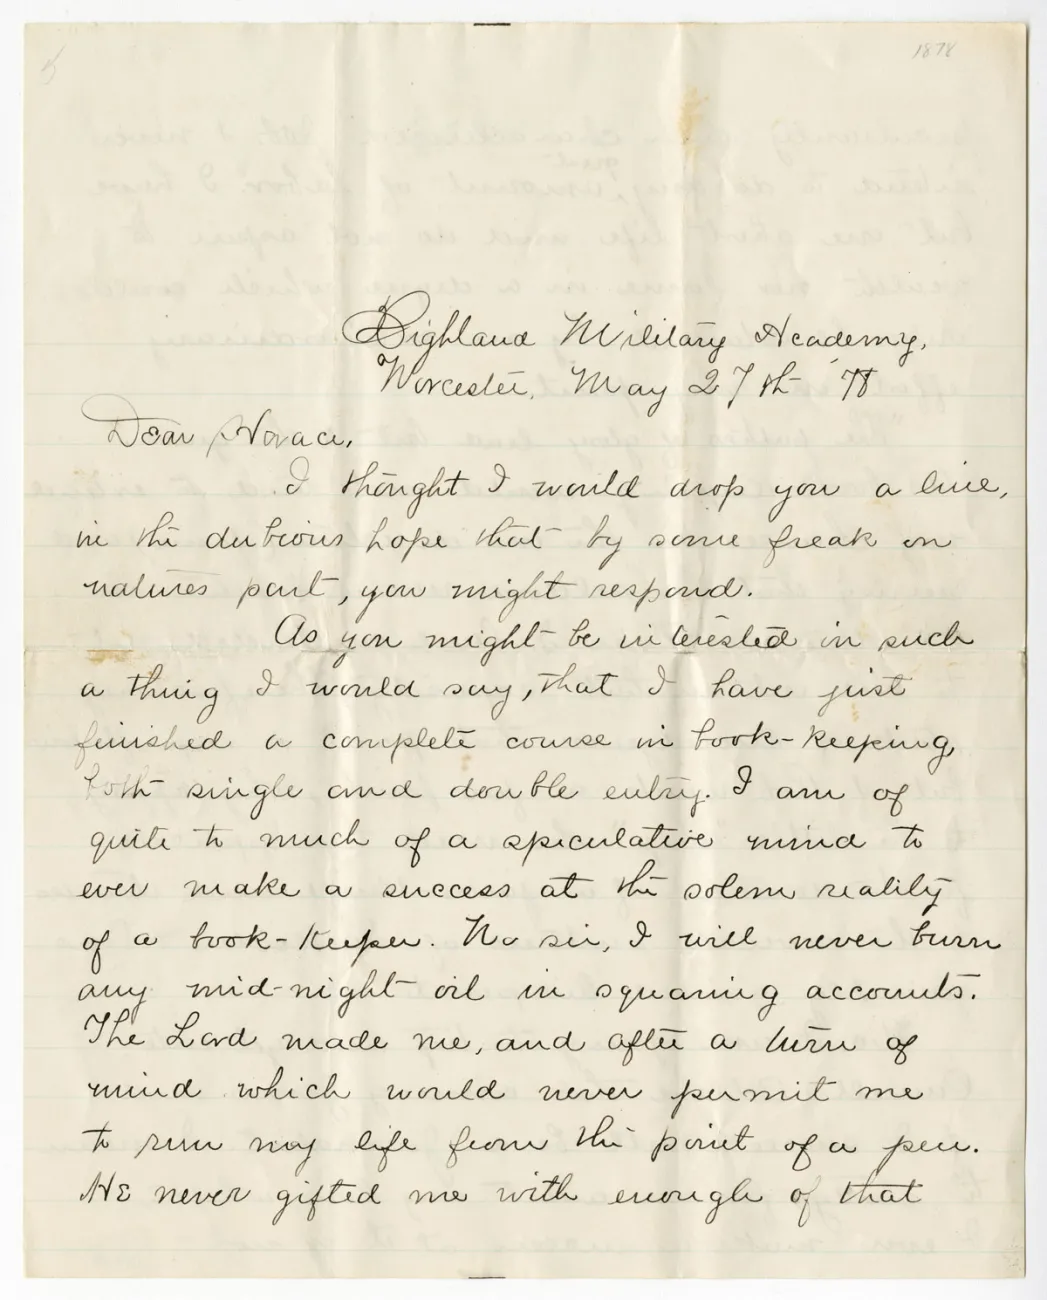 1878
5
Highland Military Academy,
Worcester, May 27th '78
Dear Horace,
I thought I would drop you a line,
in the dubious hope that by some freak on
natures part, you might respond.
As you might be interested in such
a thing I would say, that I have just
finished a complete course in book-keeping,
both single and double entry. I am of
quite to much of a speculative mind to
ever make a success at the solem reality
of a book-keeper. No sir, I will never burn
any mid-night oil in squaring accounts.
The Lord made me, and after a turn of
mind which would never permit me
to run my life from the point of a pen.
He never gifted me with enough of that